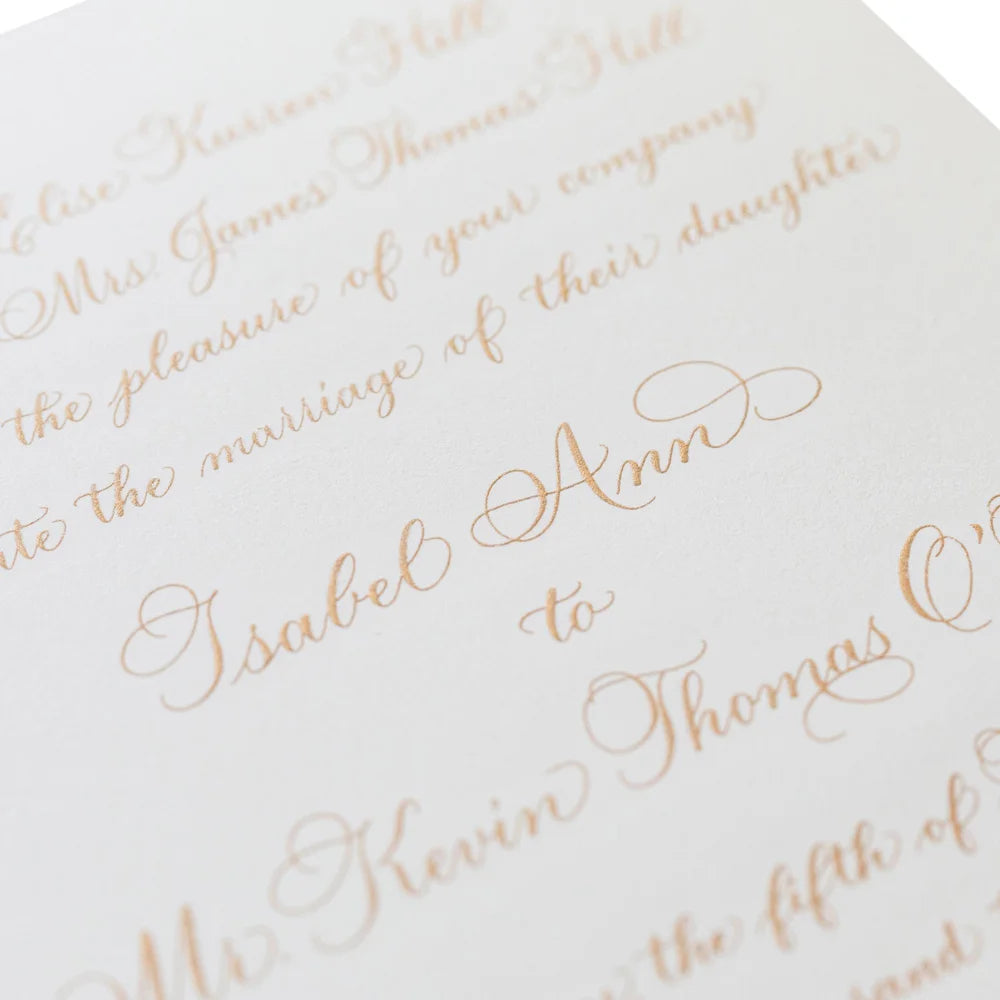 Elise Kurren Hill
Mrs. James Thomas Hill
the pleasure of your company
the marriage of their daughter
Isabel Ann
to
Mr. Kevin Thomas O'
the fifth of